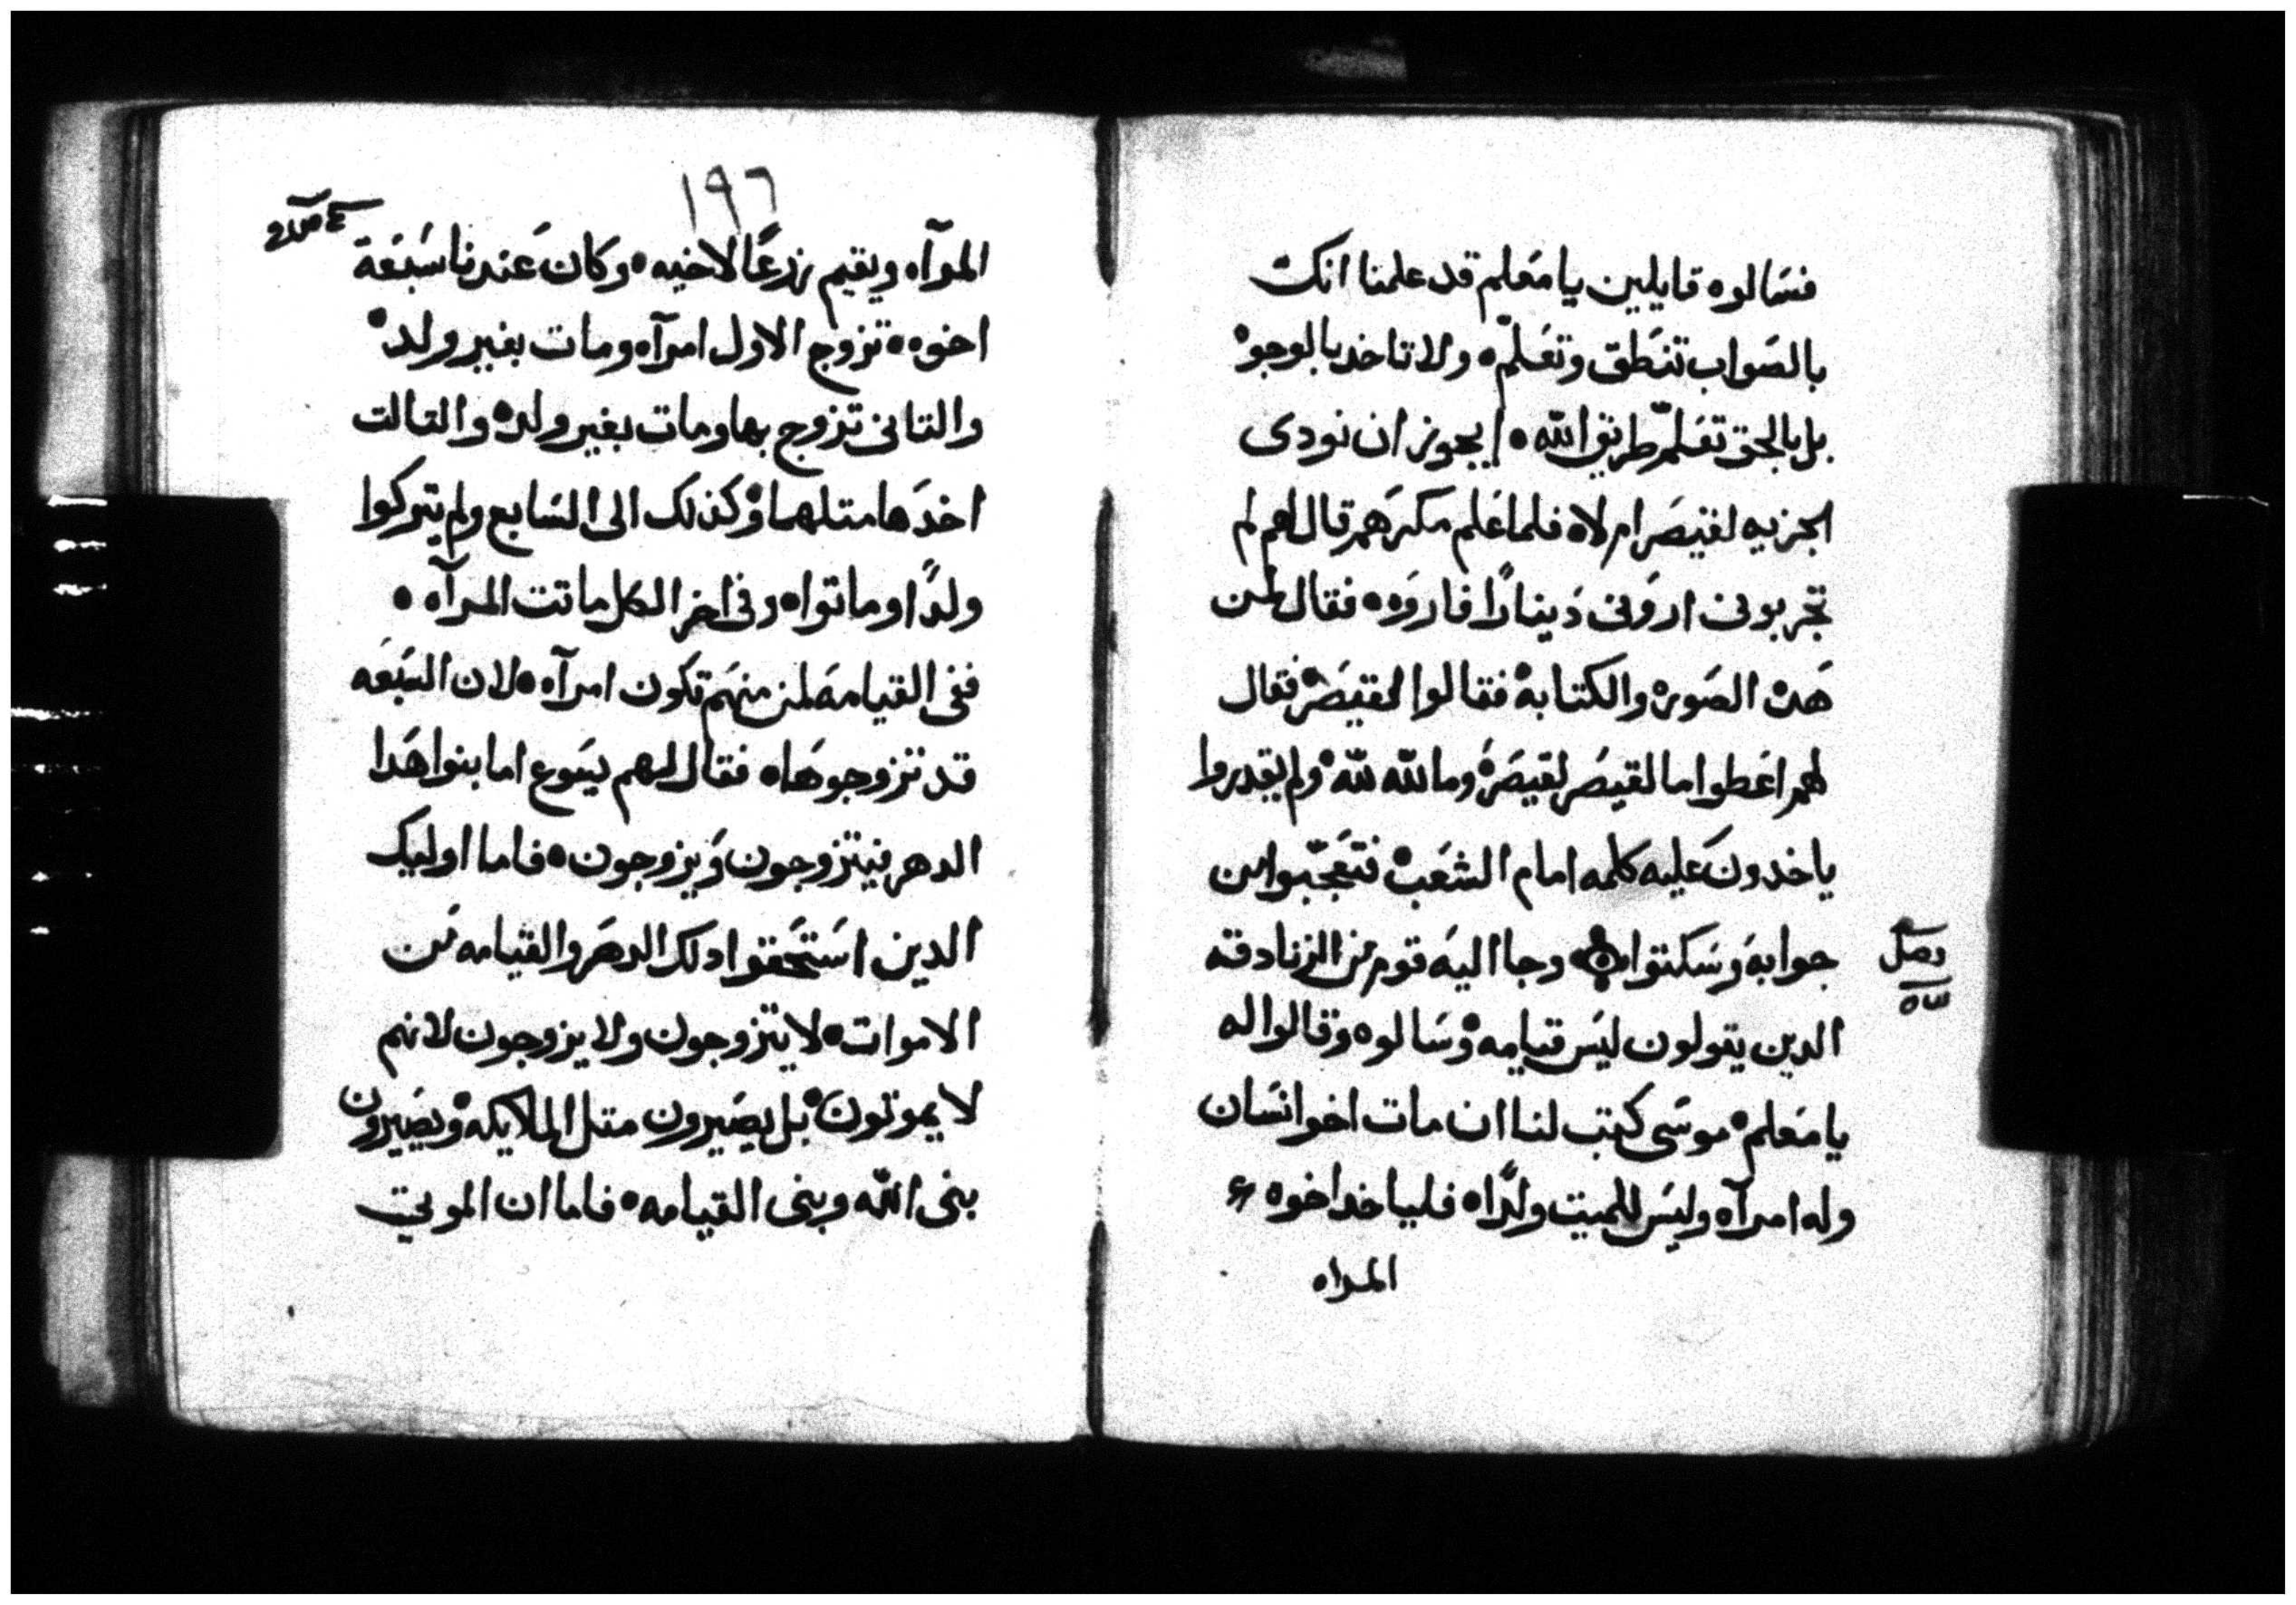 فسالوه قايلين يا معلم قد علمنا انك
بالصواب تنطق وتعلم ولا تاخد بالوجوه
بل بالحق تعلم طريق الله ايجوز ان نودى
الجزيه لقيصر ام لا فلما علم مكرهم قال لهم لم
تجربونى ارونى دينارًا فاروه فقال لمن
هده الصوره والكتابه فقالوا لقيصر فقال
لهم اعطوا ما لقيصر لقيصر وما لله لله ولم يقدروا
ياخدون عليه كلمه امام الشعب فتعجبوا من
جوابه وسكتوا وجا اليه قوم من الزنادقه
فصل
الدين يقولون ليس قيامه وسالوه وقالوا له
يا معلم موسى كتب لنا ان مات اخو انسان
وله امرآه وليس للميت ولدًا فلياخد اخوه
المراه
١٩٦
المرآه ويقيم زرعًا لاخيه وكان عندنا سبعة
اخوه تزوج الاول امرآه ومات بغير ولد
والتانى تزوج بها ومات بغير ولد والتالت
اخدها متلهما وكذلك الى السابع ولم يتركوا
ولدًا وماتوا وفى اخر الكل ماتت المرآه
ففى القيامه لمن منهم تكون امرآه لان السبعه
قد تزوجوها فقال لهم يسوع اما بنوا هدا
الدهر فيتزوجون ويزوجون فاما اوليك
الدين استحقوا دلك الدهر والقيامه من
الاموات لا يتزوجون ولا يزوجون لانهم
لا يموتون بل يصيرون متل الملايكه ويصيرون
بنى الله وبنى القيامه فاما ان الموتى